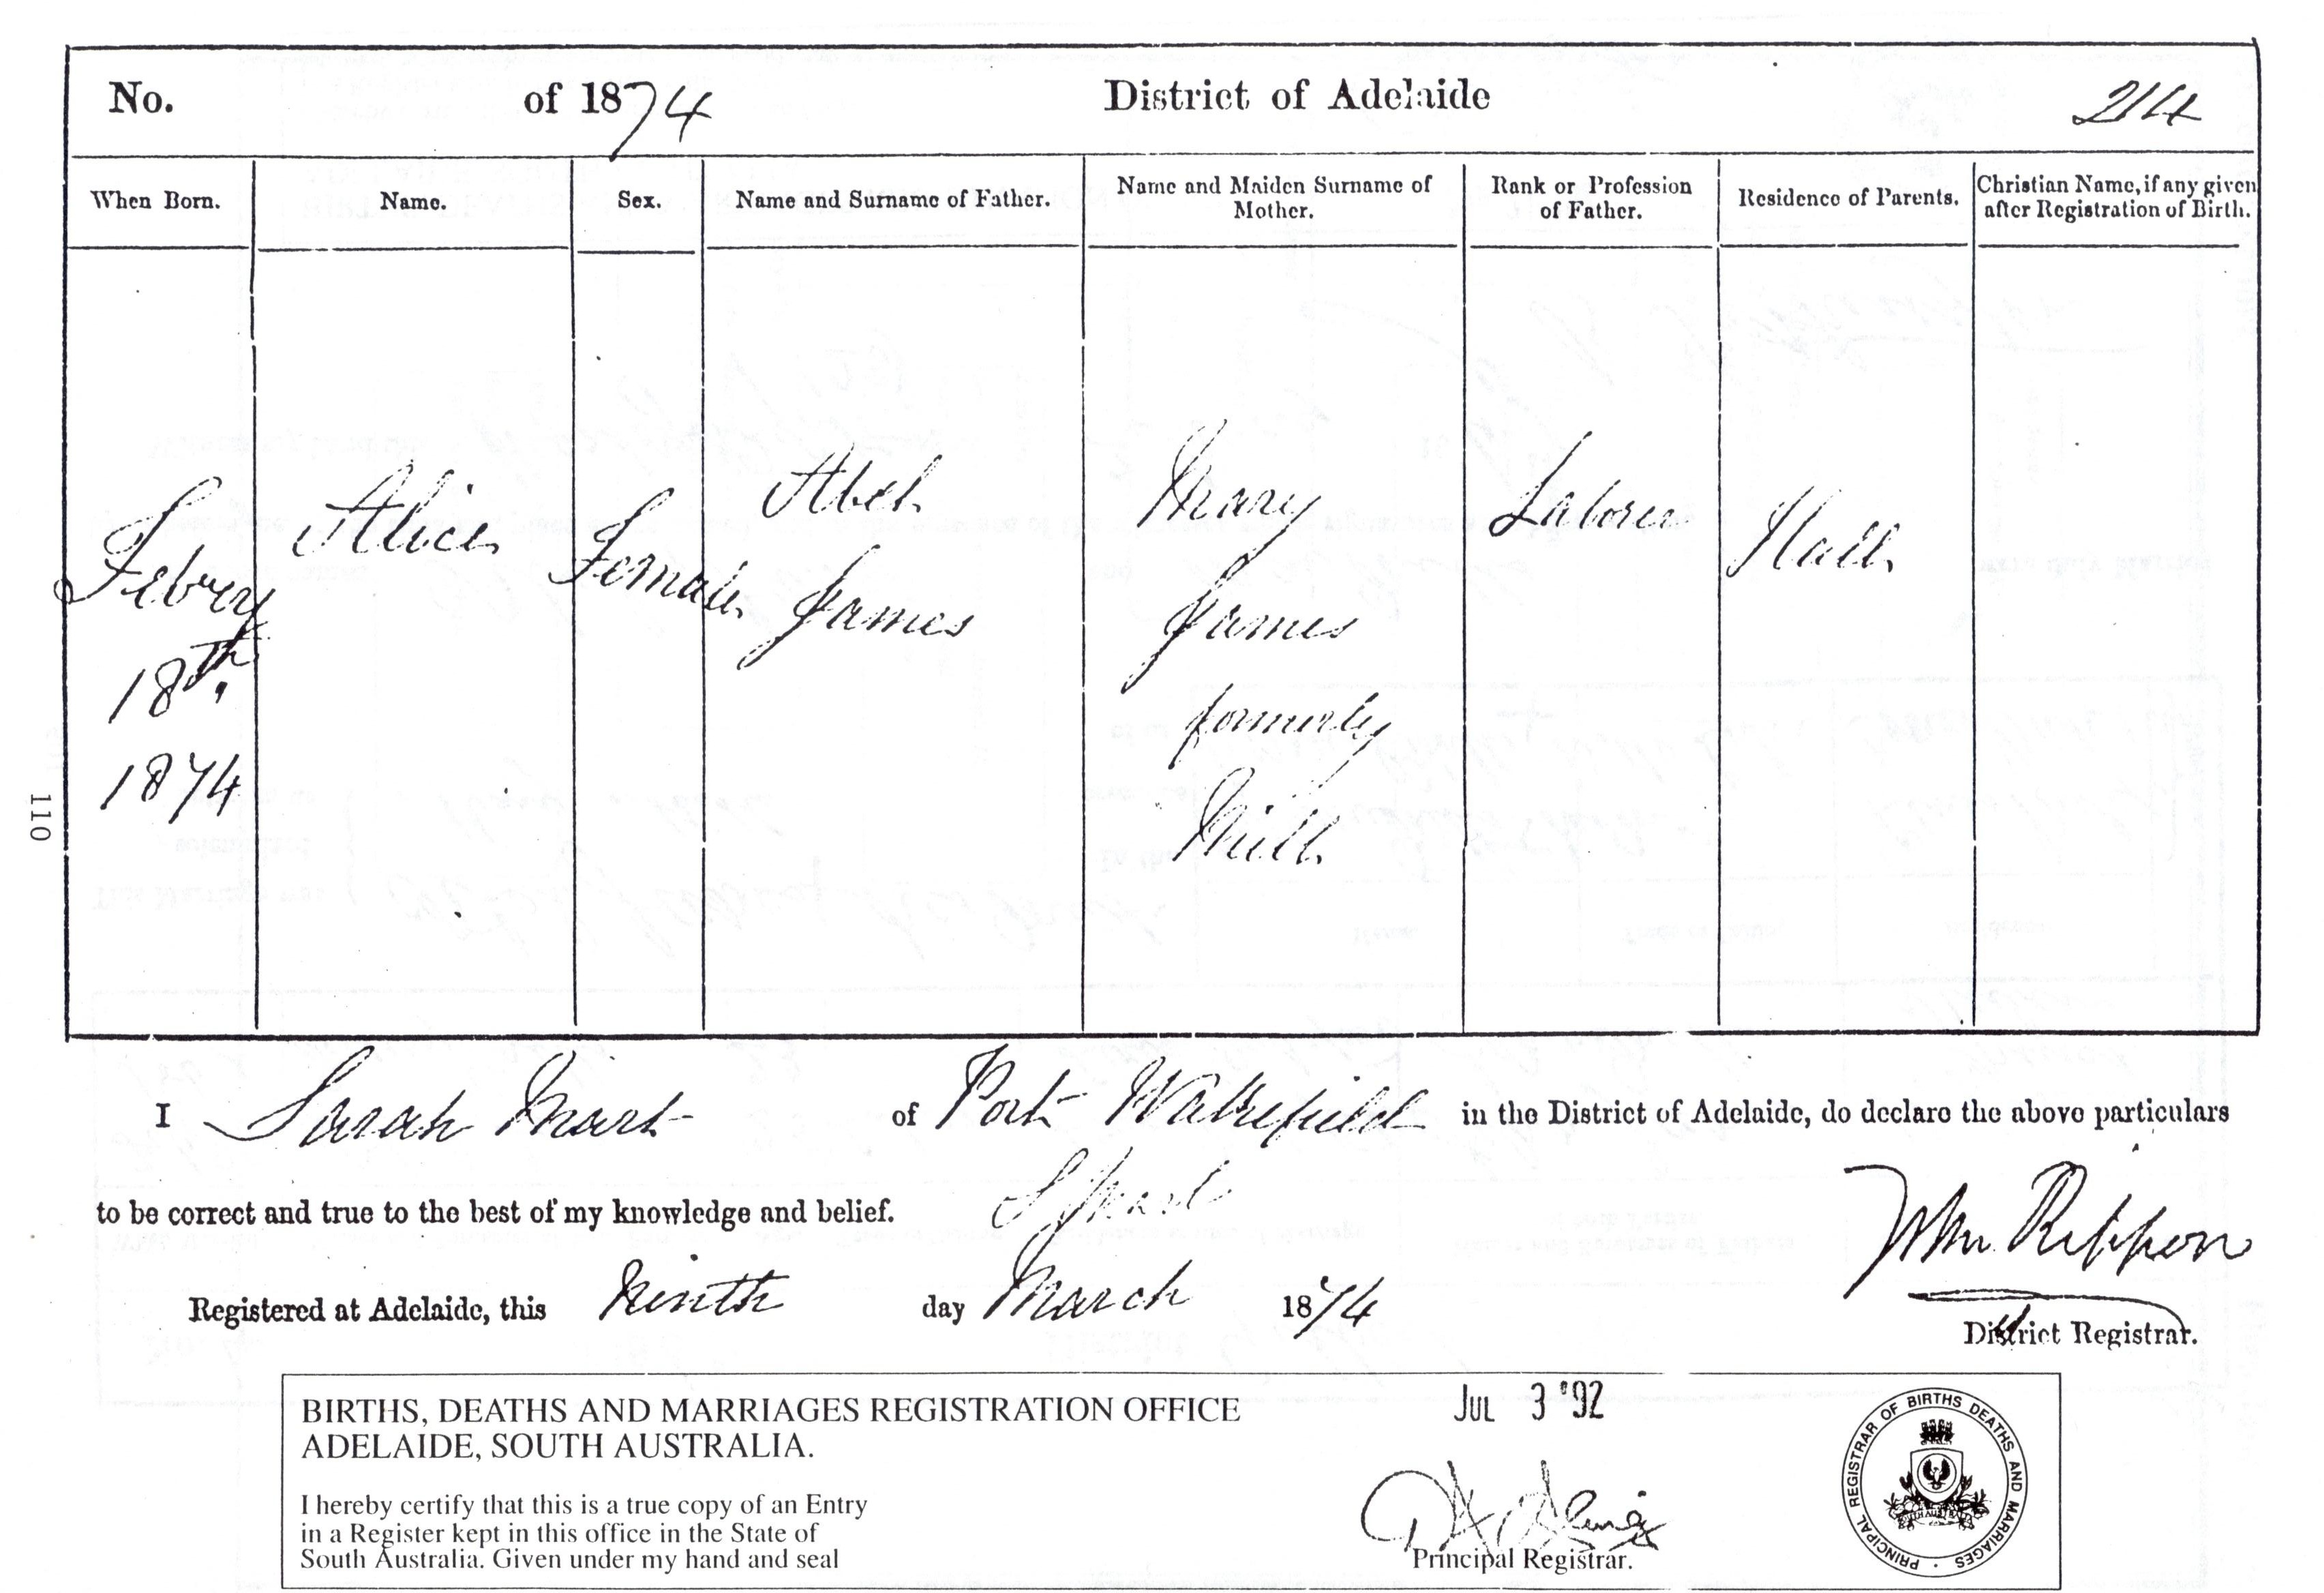 No. of 1874 District of Adelaide 214
When Born. Name. Sex. Name and Surname of Father. Name and Maiden Surname of Mother. Rank or Profession of Father. Residence of Parents. Christian Name, if any given after Registration of Birth.
Febry
18th
1874
Alice
Female
Abel
James
Mary
James
formerly
Mill
Laborer
Hall
I Sarah Mart of Port Wakefield in the District of Adelaide, do declare the above particulars
to be correct and true to the best of my knowledge and belief. S Mart
Registered at Adelaide, this Ninth day March 1874
Wm Rippon
District Registrar.
110
BIRTHS, DEATHS AND MARRIAGES REGISTRATION OFFICE
ADELAIDE, SOUTH AUSTRALIA.
I hereby certify that this is a true copy of an Entry
in a Register kept in this office in the State of
South Australia. Given under my hand and seal
JUL 3 '92
Principal Registrar.
PRINCIPAL REGISTRAR OF BIRTHS DEATHS AND MARRIAGES
SOUTH AUSTRALIA